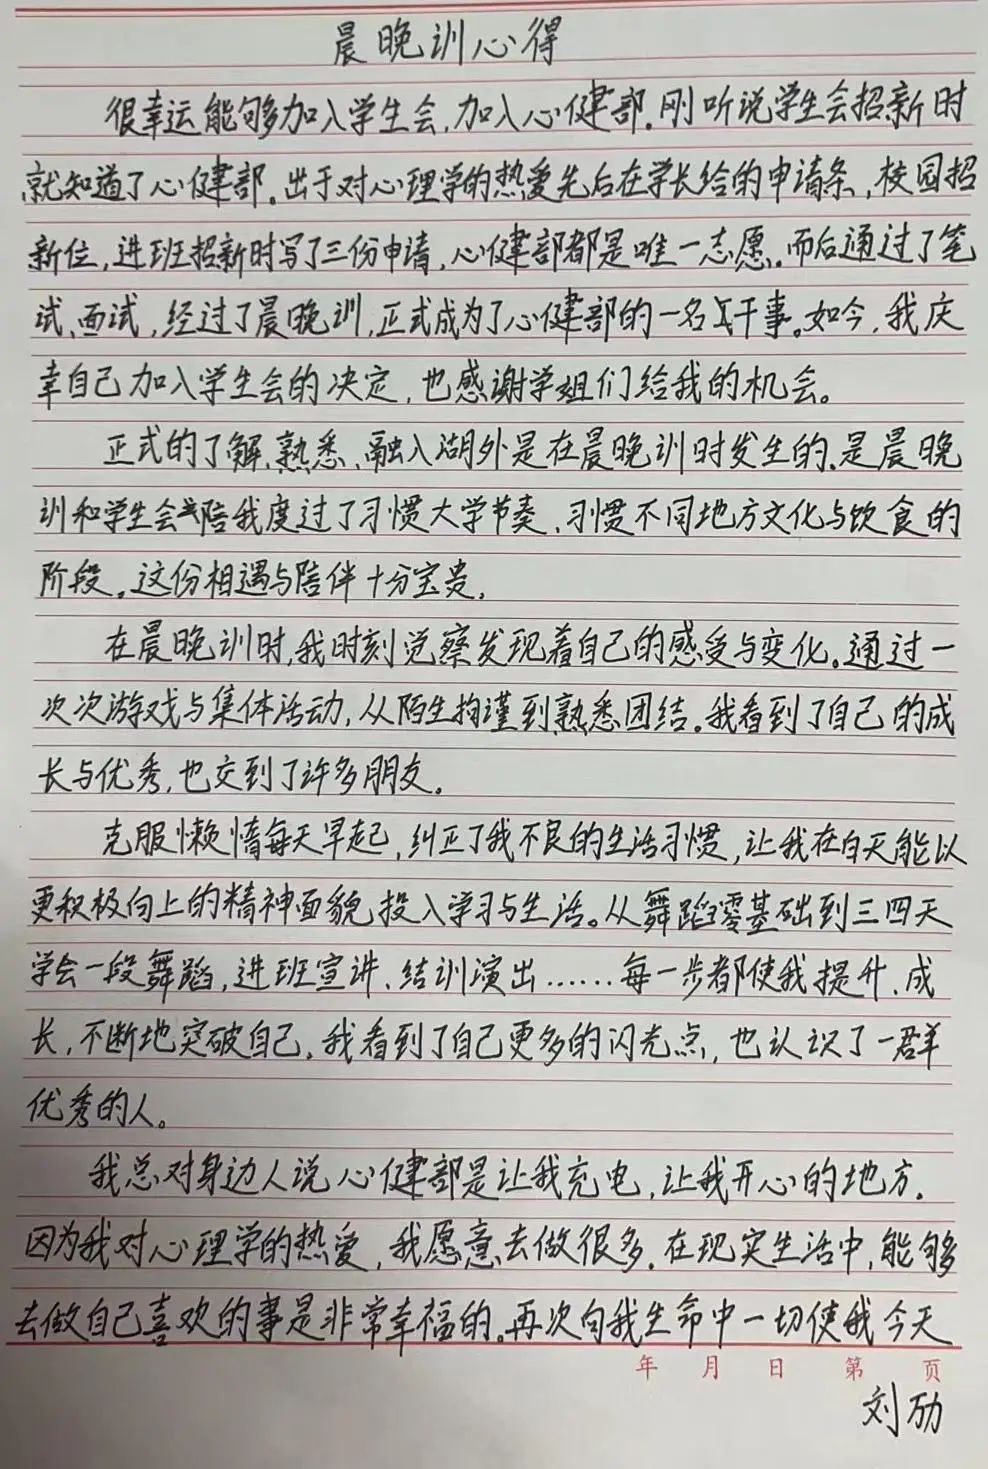 晨晚训心得
很幸运能够加入学生会,加入心健部.刚听说学生会招新时
就知道了心健部.出于对心理学的热爱先后在学长给的申请条,校园招
新位,进班招新时写了三份申请,心健部都是唯一志愿.而后通过了笔
试、面试,经过了晨晚训,正式成为了心健部的一名干事。如今,我庆
幸自己加入学生会的决定,也感谢学姐们给我的机会。
正式的了解、熟悉、融入湖外是在晨晚训时发生的.是晨晚
训和学生会陪我度过了习惯大学节奏、习惯不同地方文化与饮食的
阶段。这份相遇与陪伴十分宝贵.
在晨晚训时,我时刻觉察发现着自己的感受与变化。通过一
次次游戏与集体活动,从陌生拘谨到熟悉团结。我看到了自己的成
长与优秀,也交到了许多朋友。
克服懒惰每天早起,纠正了我不良的生活习惯,让我在白天能以
更积极向上的精神面貌投入学习与生活。从舞蹈零基础到三四天
学会一段舞蹈,进班宣讲、结训演出……每一步都使我提升、成
长,不断地突破自己.我看到了自己更多的闪光点,也认识了一群
优秀的人。
我总对身边人说心健部是让我充电,让我开心的地方.
因为我对心理学的热爱,我愿意去做很多.在现实生活中,能够
去做自己喜欢的事是非常幸福的.再次向我生命中一切使我今天
年 月 日 第 页
刘励